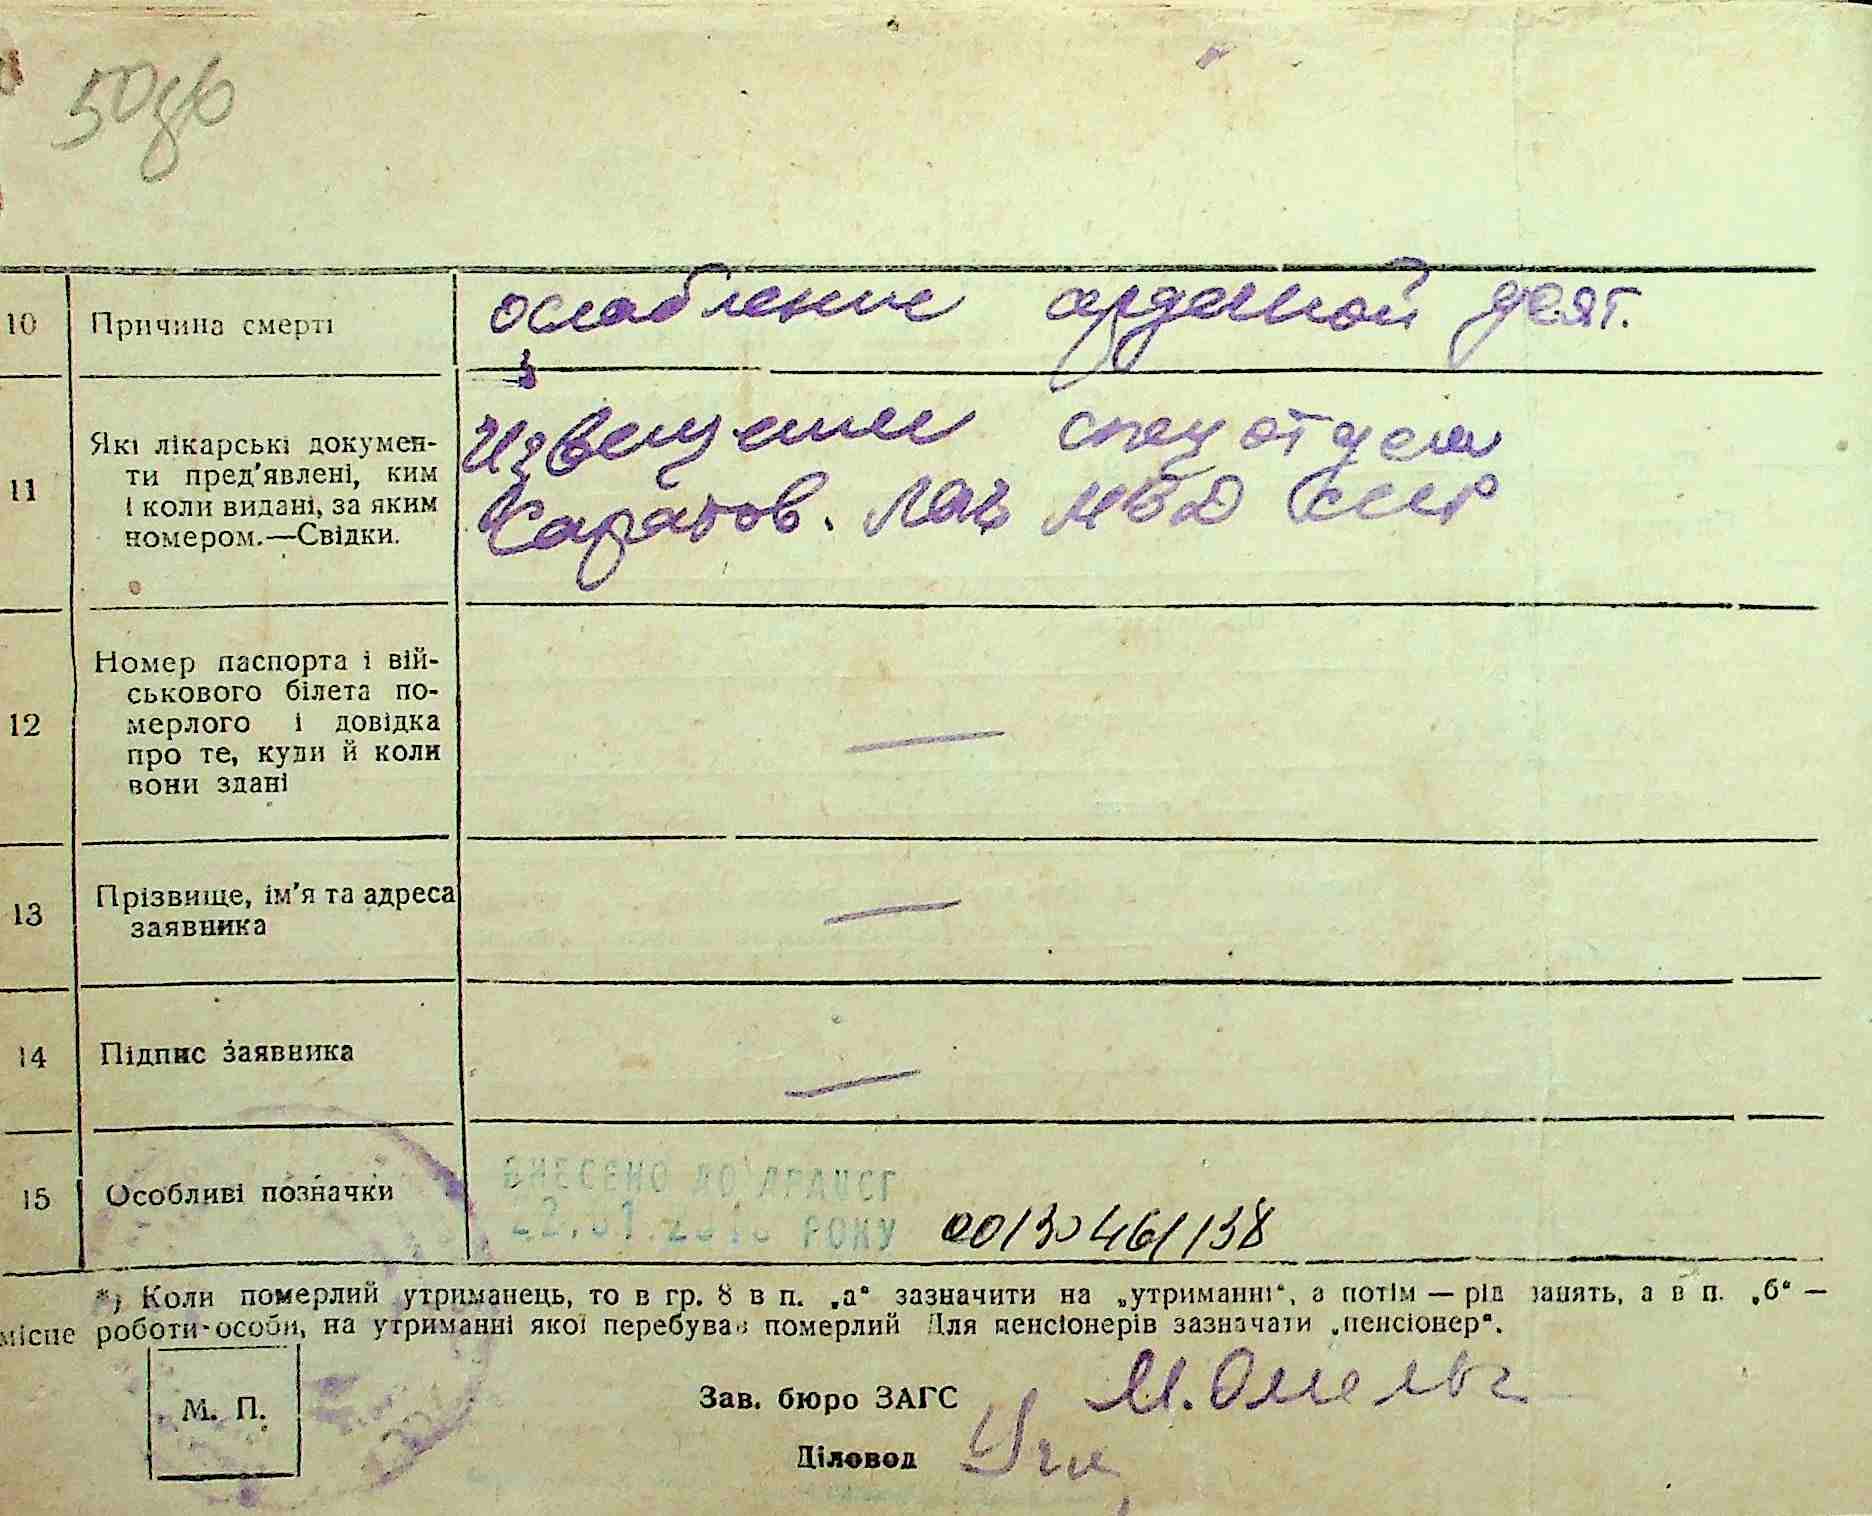 10
Причина смерті
ослабление сердечной деят.
11
Які лікарські докумен-
ти пред'явлені, ким
і коли видані, за яким
номером.—Свідки.
Извещение спецотдела
Саратов. лаг МВД СССР
12
Номер паспорта і вій-
ськового білета по-
мерлого і довідка
про те, куди й коли
вони здані
—
13
Прізвище, ім'я та адреса
заявника
—
14
Підпис заявника
—
15
Особливі позначки
ВНЕСЕНО ДО ДРАЦСГ
22.01. РОКУ
00130461138
*) Коли померлий утриманець, то в гр. 8 в п. „а" зазначити на „утриманні", а потім — рід занять, а в п. „б" —
місце роботи особи, на утриманні якої перебував померлий Для пенсіонерів зазначати „пенсіонер".
М. П.
Зав. бюро ЗАГС
Діловод